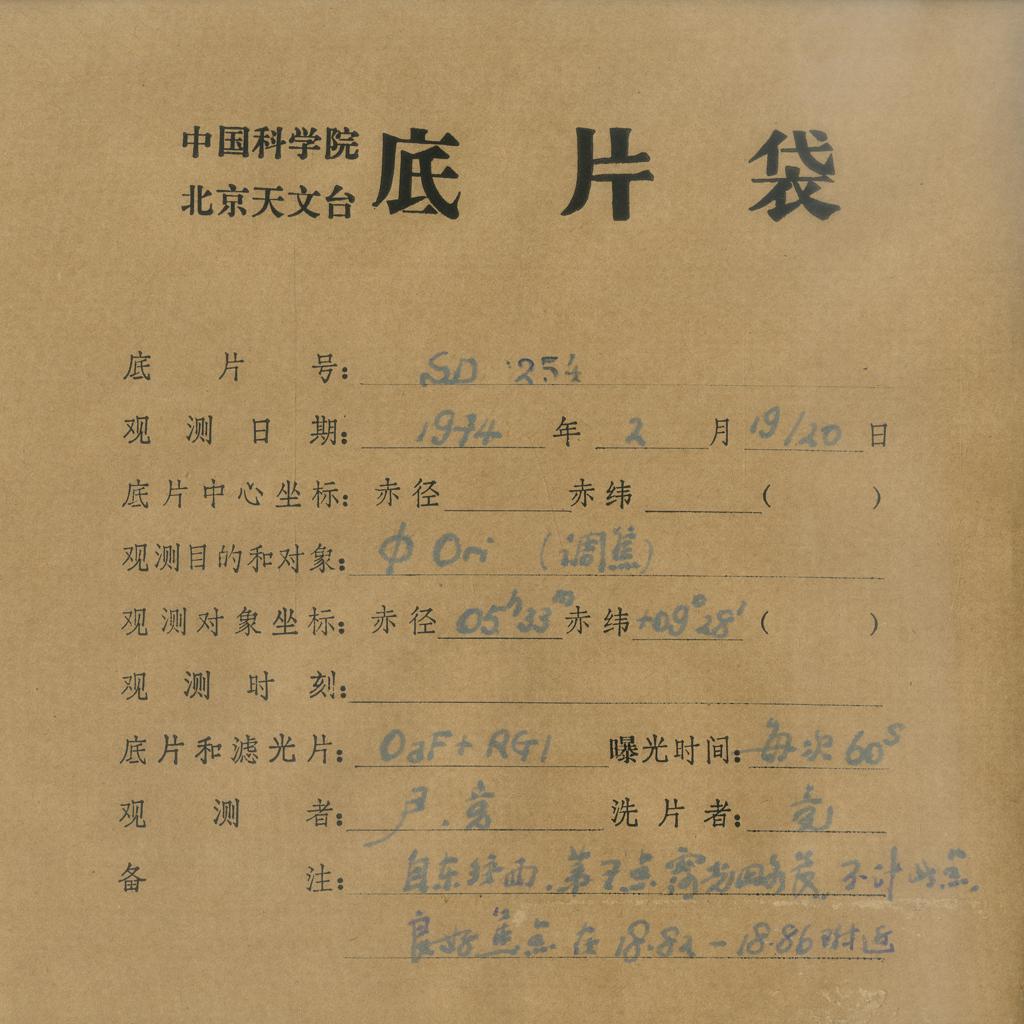 中国科学院
北京天文台
底片袋
底片号: SD 254
观测日期: 1974 年 2 月 19/20 日
底片中心坐标: 赤径 赤纬 ( )
观测目的和对象: φ Ori (调焦)
观测对象坐标: 赤径 05h33m 赤纬 +09°28′ ( )
观测时刻:
底片和滤光片: OaF+RG1 曝光时间: 每次60s
观测者: 尹. 洗片者:
备注: 自东 西. 第 点 不计此点.
良好焦点在18.82-18.86附近